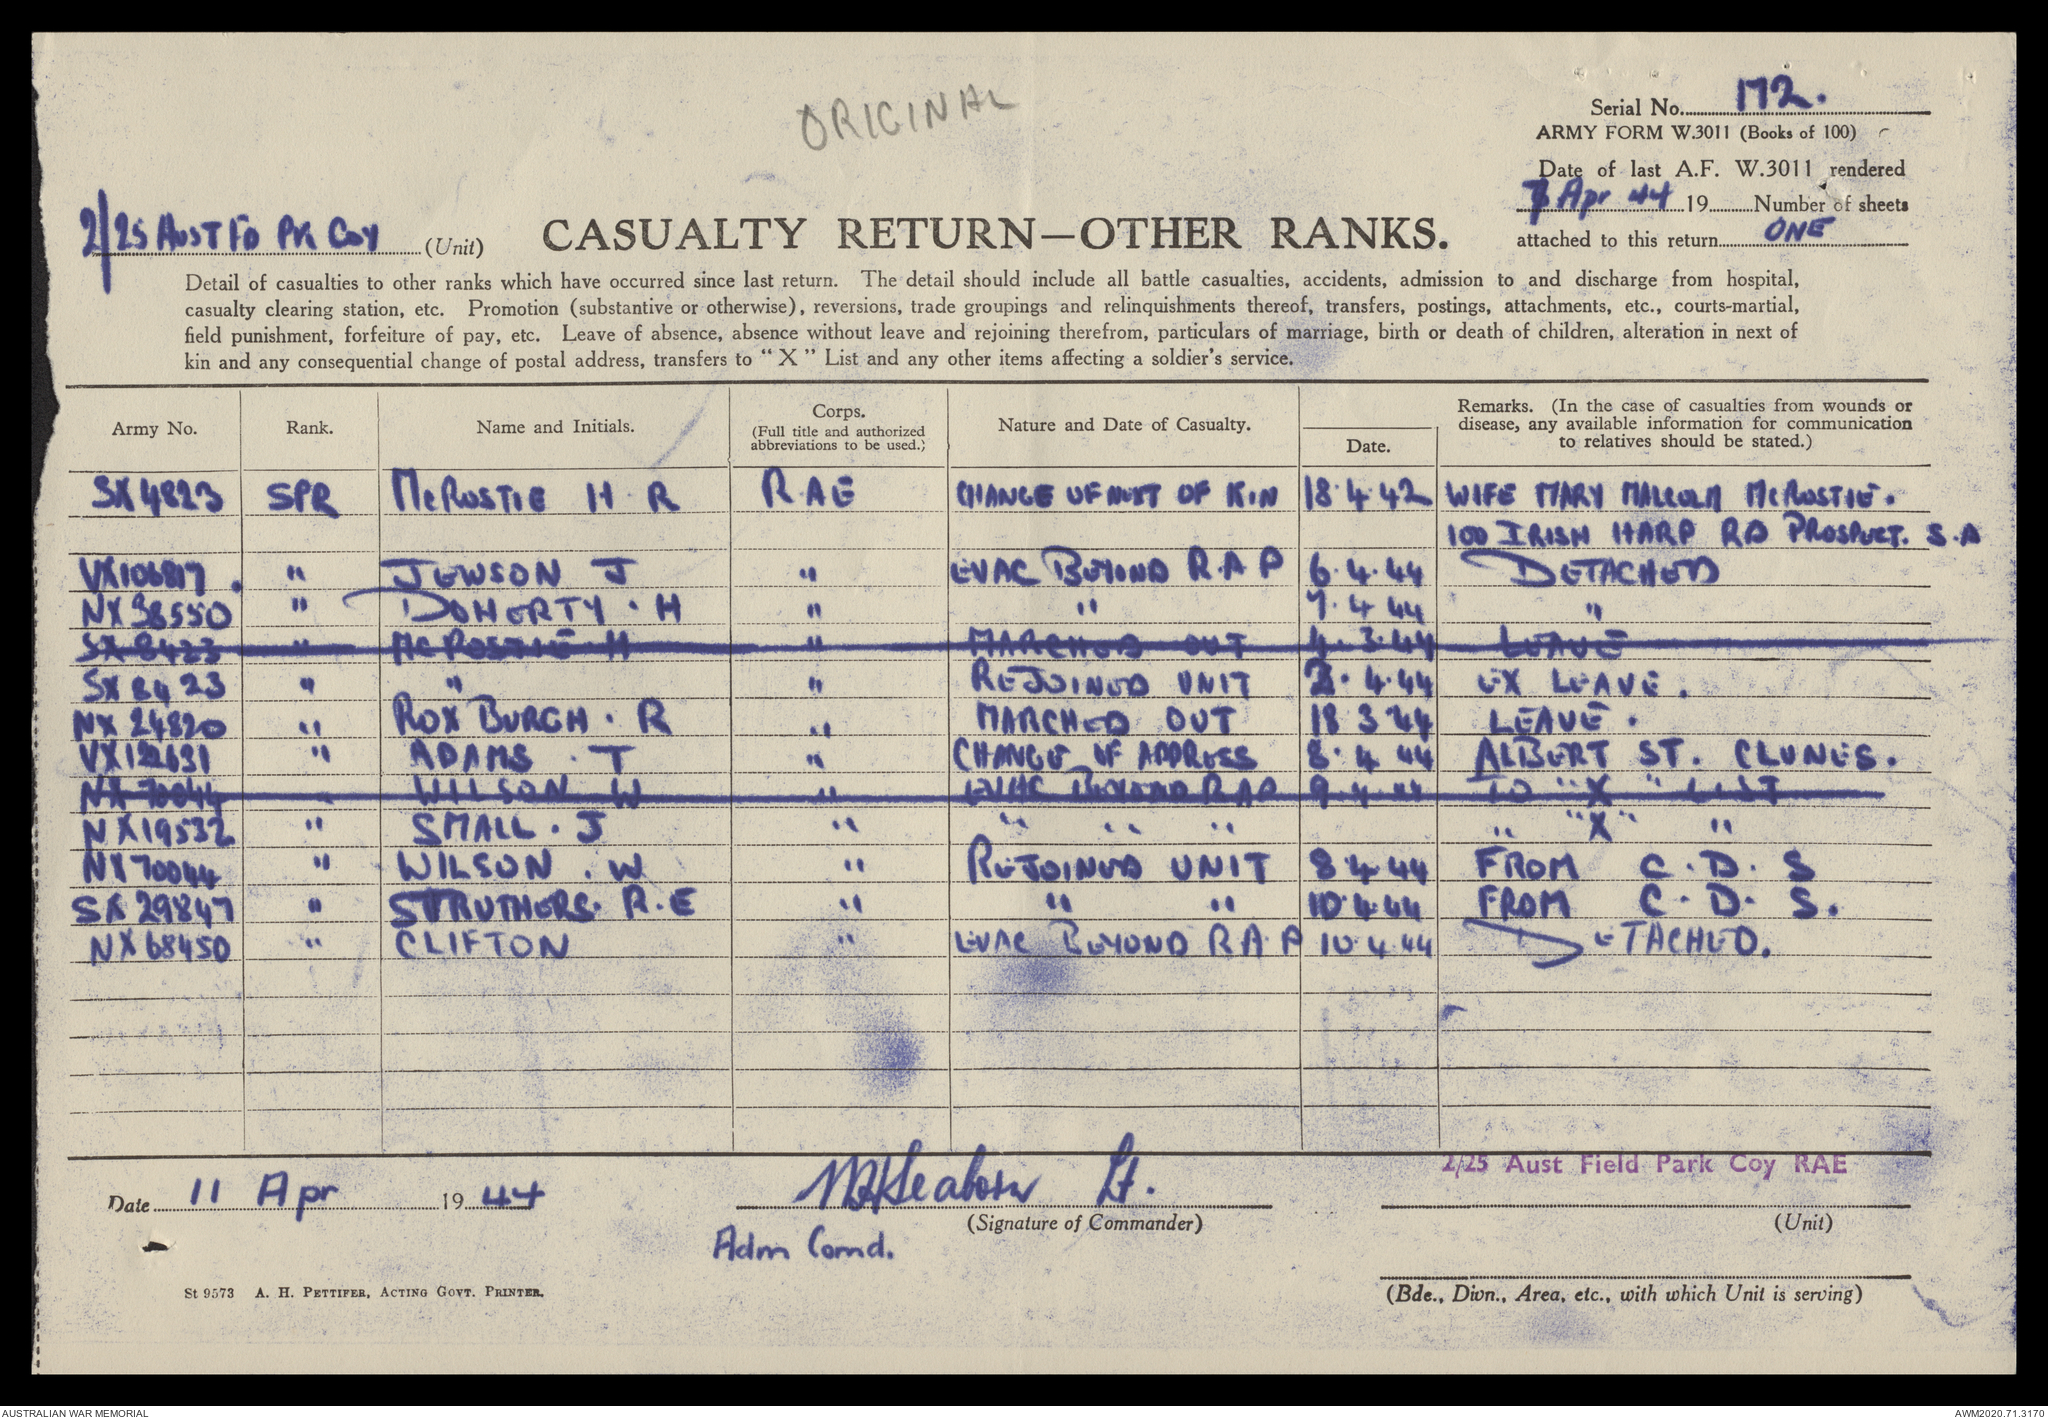 ORIGINAL
Serial No. 172.
ARMY FORM W.3011 (Books of 100)
Date of last A.F. W.3011 rendered
7 Apr 44 19 Number of sheets
attached to this return ONE
2/25 AUST FD PK COY (Unit)
CASUALTY RETURN—OTHER RANKS.
Detail of casualties to other ranks which have occurred since last return. The detail should include all battle casualties, accidents, admission to and discharge from hospital,
casualty clearing station, etc. Promotion (substantive or otherwise), reversions, trade groupings and relinquishments thereof, transfers, postings, attachments, etc., courts-martial,
field punishment, forfeiture of pay, etc. Leave of absence, absence without leave and rejoining therefrom, particulars of marriage, birth or death of children, alteration in next of
kin and any consequential change of postal address, transfers to "X" List and any other items affecting a soldier's service.
Army No. Rank. Name and Initials. Corps. (Full title and authorized abbreviations to be used.) Nature and Date of Casualty. Date. Remarks. (In the case of casualties from wounds or disease, any available information for communication to relatives should be stated.)
SX4823 SPR McROSTIE H R R.A.E CHANGE OF NEXT OF KIN 18.4.42 WIFE MARY MALCOLM McROSTIE.
100 IRISH HARP RD PROSPECT. S.A
VX106817. " JEWSON J " EVAC BEYOND R.A.P 6.4.44 DETACHED
NX38550 " DOHERTY. H " " 7.4.44 "
SX8423 " McROSTIE H " MARCHED OUT 4.3.44 LEAVE
SX8423 " " " REJOINED UNIT 2.4.44 EX LEAVE.
NX24820 " ROXBURGH. R " MARCHED OUT 18 3 44 LEAVE.
VX122631 " ADAMS. T " CHANGE OF ADDRESS 8.4.44 ALBERT ST. CLUNES.
NX70044 " WILSON W " EVAC BEYOND R A P 9.4.44 TO "X" LIST
NX19532 " SMALL. J " " " " " "X" "
NX70044 " WILSON. W " REJOINED UNIT 8.4.44 FROM C.D.S
SX29847 " STRUTHERS. R.E " " " 10.4.44 FROM C.D.S.
NX68450 " CLIFTON " EVAC BEYOND R.A.P 10.4.44 DETACHED.
2/25 Aust Field Park Coy RAE
Date 11 Apr 19 44 Lt.
(Signature of Commander) (Unit)
Adm Comd.
St 9573 A. H. PETTIFER, ACTING GOVT. PRINTER.
(Bde., Divn., Area, etc., with which Unit is serving)
AUSTRALIAN WAR MEMORIAL AWM2020.71.3170